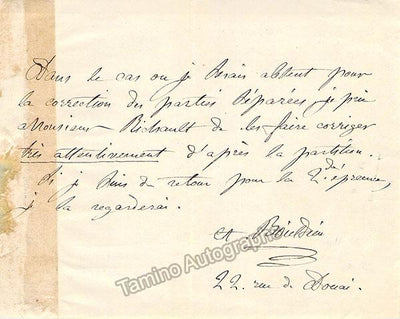 Dans le cas ou je serais absent pour
la correction des parties séparées je prie
Monsieur Richault de les faire corriger
très attentivement d'après la partition.
Si je suis de retour pour la 2.de épreuve,
je la regarderai.
A Boieldieu
22. rue de Douai.
Tamino Autographs